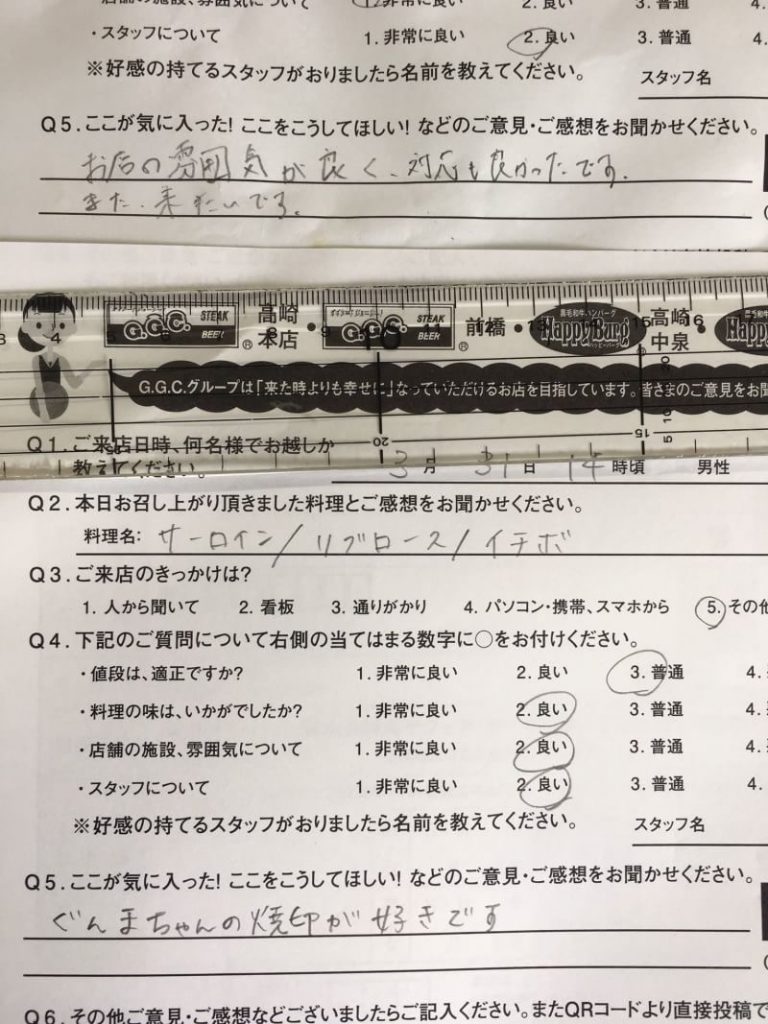 ・店舗の施設、雰囲気について 1. 非常に良い 2. 良い 3. 普通 4.
・スタッフについて 1. 非常に良い 2. 良い 3. 普通 4.
※好感の持てるスタッフがおりましたら名前を教えてください。 スタッフ名
Q5.ここが気に入った!ここをこうしてほしい!などのご意見・ご感想をお聞かせください。
お店の雰囲気が良く、対応も良かったです。
また、来たいです。
G.G.C. STEAK BEER ® 高崎本店・G.G.C. STEAK BEER ® 前橋・黒毛和牛ハンバーグ Happy Burg 高崎中泉・
G.G.C.グループは「来た時よりも幸せに」なっていただけるお店を目指しています。皆さまのご意見をお聞
Q1.ご来店日時、何名様でお越しか
教えてください。 3月 31日 14時頃 男性
Q2.本日お召し上がり頂きました料理とご感想をお聞かせください。
料理名: サーロイン/リブロース/イチボ
Q3.ご来店のきっかけは?
1. 人から聞いて 2. 看板 3. 通りがかり 4. パソコン・携帯、スマホから 5. その他
Q4.下記のご質問について右側の当てはまる数字に○をお付けください。
・値段は、適正ですか? 1. 非常に良い 2. 良い 3. 普通 4.
・料理の味は、いかがでしたか? 1. 非常に良い 2. 良い 3. 普通 4.
・店舗の施設、雰囲気について 1. 非常に良い 2. 良い 3. 普通 4.
・スタッフについて 1. 非常に良い 2. 良い 3. 普通 4.
※好感の持てるスタッフがおりましたら名前を教えてください。 スタッフ名
Q5.ここが気に入った!ここをこうしてほしい!などのご意見・ご感想をお聞かせください。
ぐんまちゃんの焼印が好きです
Q6.その他ご意見・ご感想などございましたらご記入ください。またQRコードより直接投稿で